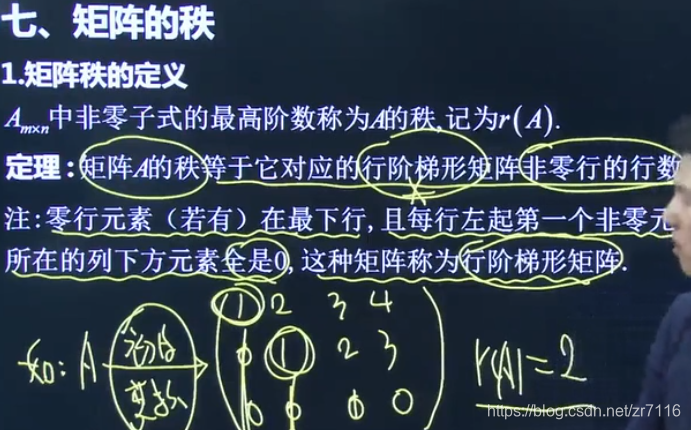 七、矩阵的秩
1.矩阵秩的定义
Am×n中非零子式的最高阶数称为A的秩,记为r(A).
定理:矩阵A的秩等于它对应的行阶梯形矩阵非零行的行数
注:零行元素（若有）在最下行,且每行左起第一个非零元
所在的列下方元素全是0,这种矩阵称为行阶梯形矩阵.
如: A 初等变换
1 2 3 4
0 1 2 3
0 0 0 0
r(A)=2
https://blog.csdn.net/zr7116